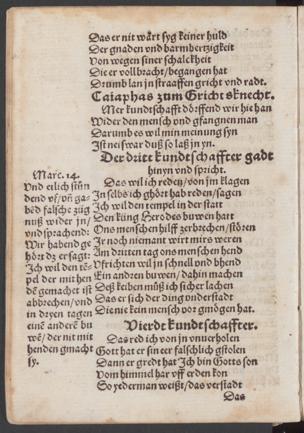 Das er nit wårt syg keiner huld
Der gnaden vnd barmhertzigkeit
Von wegen siner schalckheit
Die er vollbracht/begangen hat
Drumb lan jn straaffen gricht vnd radt.
Caiaphas zum Grichtsknecht.
Mer kundtschafft dörffend wir hie han
Wider den mensch vnd gfangnen man
Darumb es wil min meinung syn
Ist neiswar duß so laß jn yn.
Der dritt kundtschaffter gadt
hinyn vnd spricht.
Das wil ich reden/von jm klagen
In selbs ich ghört hab reden/sagen
Ich wil den tempel in der statt
Den küng Herodes buwen hatt
Ons menschen hilff zerbrechen/stören
Jr noch niemant wirt mirs weren
Am dritten tag one menschen hend
Vfrichten wil jn schnell vnd bhend
Ein andren buwen/dahin machen
Deß keiben můß ich sicher lachen
Das er sich der ding vnderstadt
Die nie kein mensch vor gmögen hat.
Vierdt kundtschaffter.
Das red ich von jn vnuerholen
Gott hat er sin eer falschlich gstolen
Dann er gredt hat Ich bin Gotts son
Vom himmel har vff erden kon
So yederman weißt/das verstadt
Das
Marc. 14.
Vnd etlich stůn
dend vf/vñ ga-
bēd falsche züg
nuß wider jn/
vnd sprachend:
Wir habend ge
hört dz er sagt:
Ich wil den tē-
pel der mit hen
dē gemachet ist
abbrechen/vnd
in dryen tagen
eine anderē bu
wē/der nit mit
henden gmacht
sy.